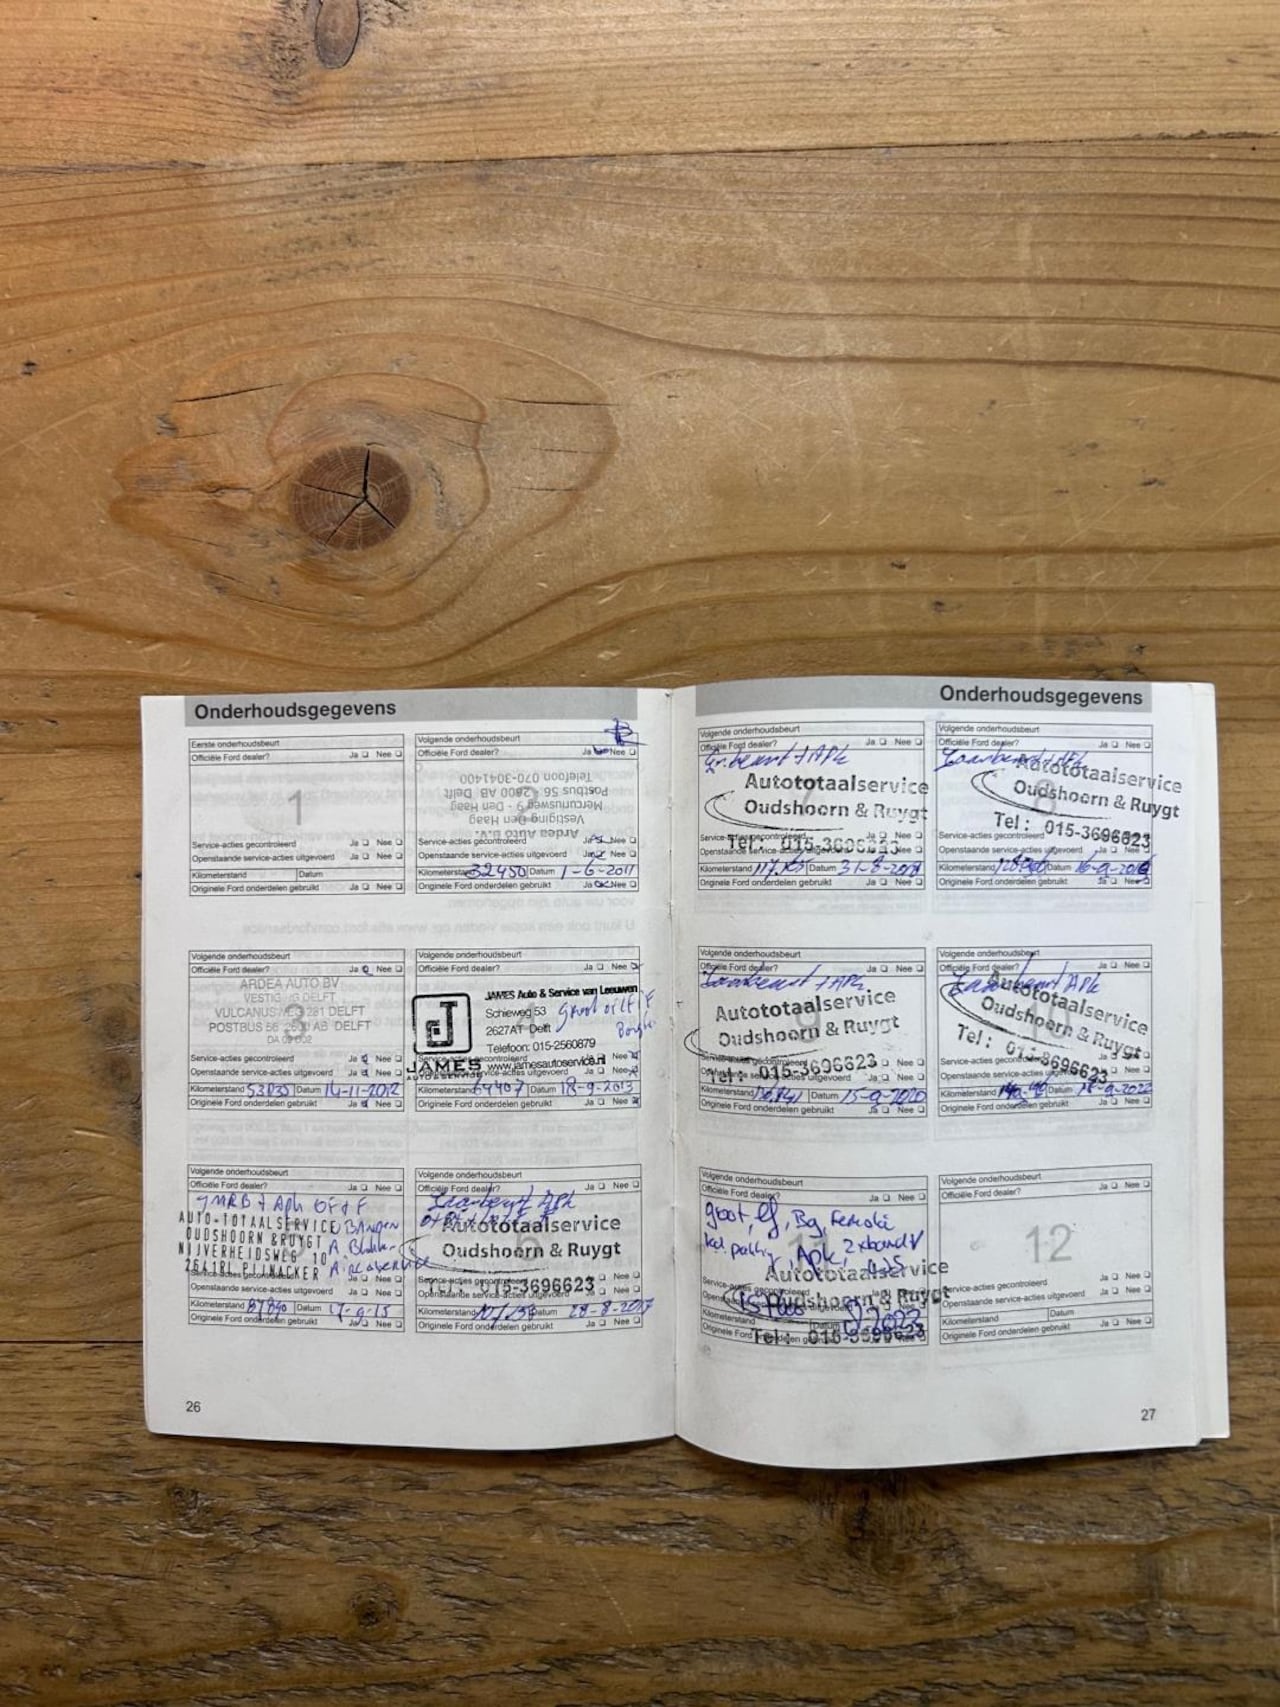 Onderhoudsgegevens
Eerste onderhoudsbeurt
Officiële Ford dealer? Ja Nee
1
Service-acties gecontroleerd
Openstaande service-acties uitgevoerd Ja Nee
Kilometerstand Datum
Originele Ford onderdelen gebruikt Ja Nee
Volgende onderhoudsbeurt
Officiële Ford dealer? Ja Nee
Ardea Auto B.V.
Vestiging Den Haag
Mercuriusweg 9 - Den Haag
Postbus 56, 2600 AB Delft
Telefoon 070-3041400
Service-acties gecontroleerd Ja Nee
Openstaande service-acties uitgevoerd Ja Nee
Kilometerstand 32450 Datum 1-6-2011
Originele Ford onderdelen gebruikt Ja Nee
Volgende onderhoudsbeurt
Officiële Ford dealer? Ja Nee
ARDEA AUTO BV
VESTIGING DELFT
VULCANUSWEG 281 DELFT
POSTBUS 56 2600 AB DELFT
3
Service-acties gecontroleerd Ja Nee
Openstaande service-acties uitgevoerd Ja Nee
Kilometerstand Datum 14-11-2012
Originele Ford onderdelen gebruikt Ja Nee
Volgende onderhoudsbeurt
Officiële Ford dealer? Ja Nee
JAMES Auto & Service van Leeuwen
Schieweg 53
2627AT Delft
Telefoon: 015-2560879
www.jamesautoservice.nl
J
JAMES
AUTOSERVICE
groot
Service-acties gecontroleerd Nee
Openstaande service-acties uitgevoerd Nee
Kilometerstand 64407 Datum 18-9-2013
Originele Ford onderdelen gebruikt Ja Nee
Volgende onderhoudsbeurt
Officiële Ford dealer? Ja Nee
AUTO-TOTAALSERVICE
OUDSHOORN & RUYGT
NIJVERHEIDSWEG 10
2641RL PIJNACKER
Service-acties gecontroleerd Ja Nee
Openstaande service-acties uitgevoerd Ja Nee
Kilometerstand Datum 17-9-15
Originele Ford onderdelen gebruikt Ja Nee
Volgende onderhoudsbeurt
Officiële Ford dealer? Ja Nee
Autototaalservice
Oudshoorn & Ruygt
6
015-3696623
Service-acties gecontroleerd Ja Nee
Openstaande service-acties uitgevoerd Ja Nee
Kilometerstand Datum 28-8-2017
Originele Ford onderdelen gebruikt Ja Nee
26
Onderhoudsgegevens
Volgende onderhoudsbeurt
Officiële Ford dealer? Ja Nee
Gr. beurt + APK
Autototaalservice
Oudshoorn & Ruygt
Tel: 015-3696623
Service-acties gecontroleerd Ja Nee
Openstaande service-acties uitgevoerd Ja Nee
Kilometerstand Datum 31-8-2018
Originele Ford onderdelen gebruikt Ja Nee
Volgende onderhoudsbeurt
Officiële Ford dealer? Ja Nee
Jaarbeurt + APK
Autototaalservice
Oudshoorn & Ruygt
8
Tel : 015-3696623
Service-acties gecontroleerd Ja Nee
Openstaande service-acties uitgevoerd Ja Nee
Kilometerstand Datum
Originele Ford onderdelen gebruikt Ja Nee
Volgende onderhoudsbeurt
Officiële Ford dealer? Ja Nee
Jaarbeurt + APK
Autototaalservice
Oudshoorn & Ruygt
9
Tel: 015-3696623
Service-acties gecontroleerd Ja Nee
Openstaande service-acties uitgevoerd Ja Nee
Kilometerstand Datum 15-9-2020
Originele Ford onderdelen gebruikt Ja Nee
Volgende onderhoudsbeurt
Officiële Ford dealer? Ja Nee
Jaarbeurt APK
Autototaalservice
Oudshoorn & Ruygt
10
Tel : 015-3696623
Service-acties gecontroleerd Ja Nee
Openstaande service-acties uitgevoerd Ja Nee
Kilometerstand Datum
Originele Ford onderdelen gebruikt Ja Nee
Volgende onderhoudsbeurt
Officiële Ford dealer? Ja Nee
groot, Bg,
Apk, 2xband V
11
Autototaalservice
Oudshoorn & Ruygt
Tel: 015-3696623
Service-acties gecontroleerd Ja Nee
Kilometerstand Datum 2023
Originele Ford onderdelen gebruikt
Volgende onderhoudsbeurt
Officiële Ford dealer? Ja Nee
12
Service-acties gecontroleerd Ja Nee
Openstaande service-acties uitgevoerd Ja Nee
Kilometerstand Datum
Originele Ford onderdelen gebruikt Ja Nee
27